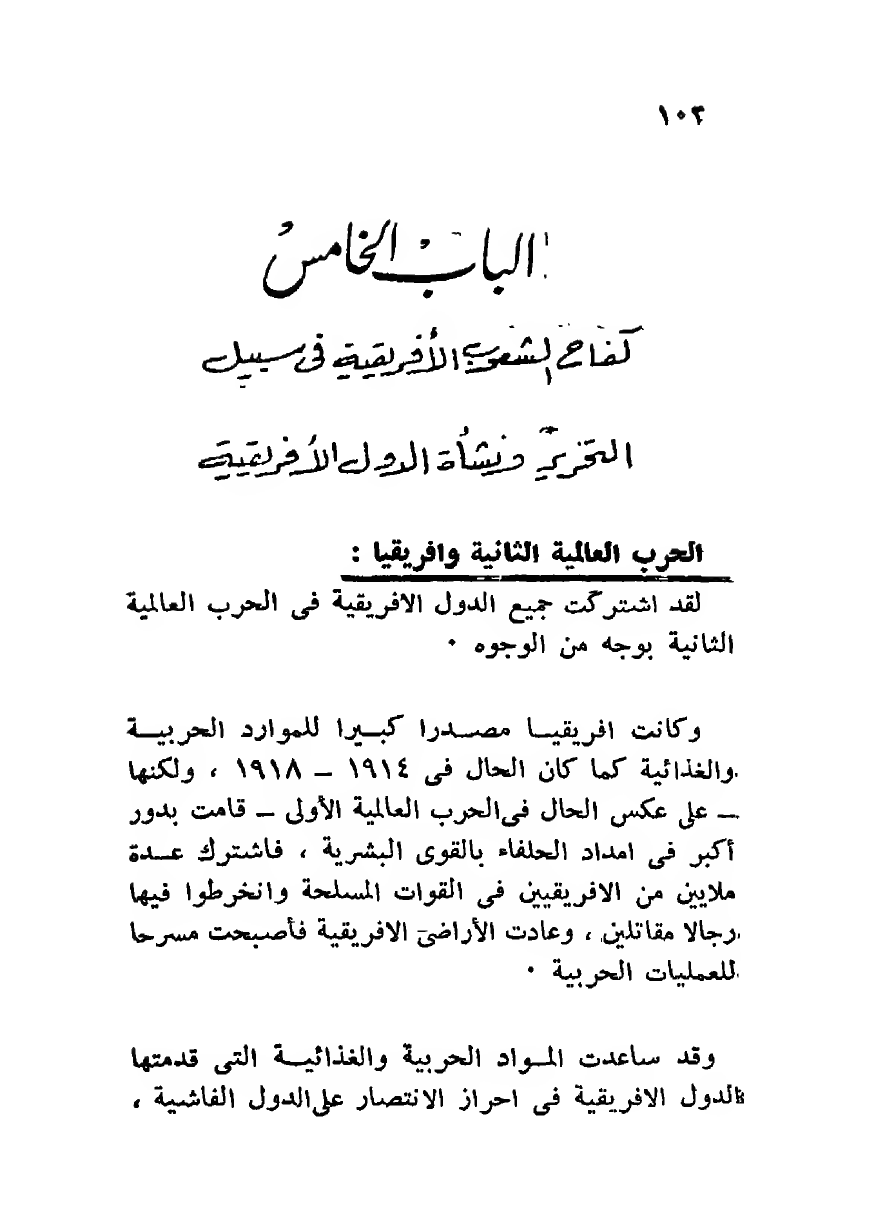 ١٠٣
الباب الخامس
كفاح الشعوب الأفريقية فى سبيل
التحرير ونشأة الدول الأفريقية
الحرب العالمية الثانية وافريقيا :
لقد اشتركت جميع الدول الافريقية فى الحرب العالمية
الثانية بوجه من الوجوه ٠
وكانت افريقيــا مصــدرا كبــيرا للموارد الحربيــة
والغذائية كما كان الحال فى ١٩١٤ – ١٩١٨ ، ولكنها
– على عكس الحال فى الحرب العالمية الأولى – قامت بدور
أكبر فى امداد الحلفاء بالقوى البشرية ، فاشترك عــدة
ملايين من الافريقيين فى القوات المسلحة وانخرطوا فيها
رجالا مقاتلين ، وعادت الأراضى الافريقية فأصبحت مسرحا
للعمليات الحربية ٠
وقد ساعدت المــواد الحربية والغذائيــة التى قدمتها
الدول الافريقية فى احراز الانتصار على الدول الفاشية ،